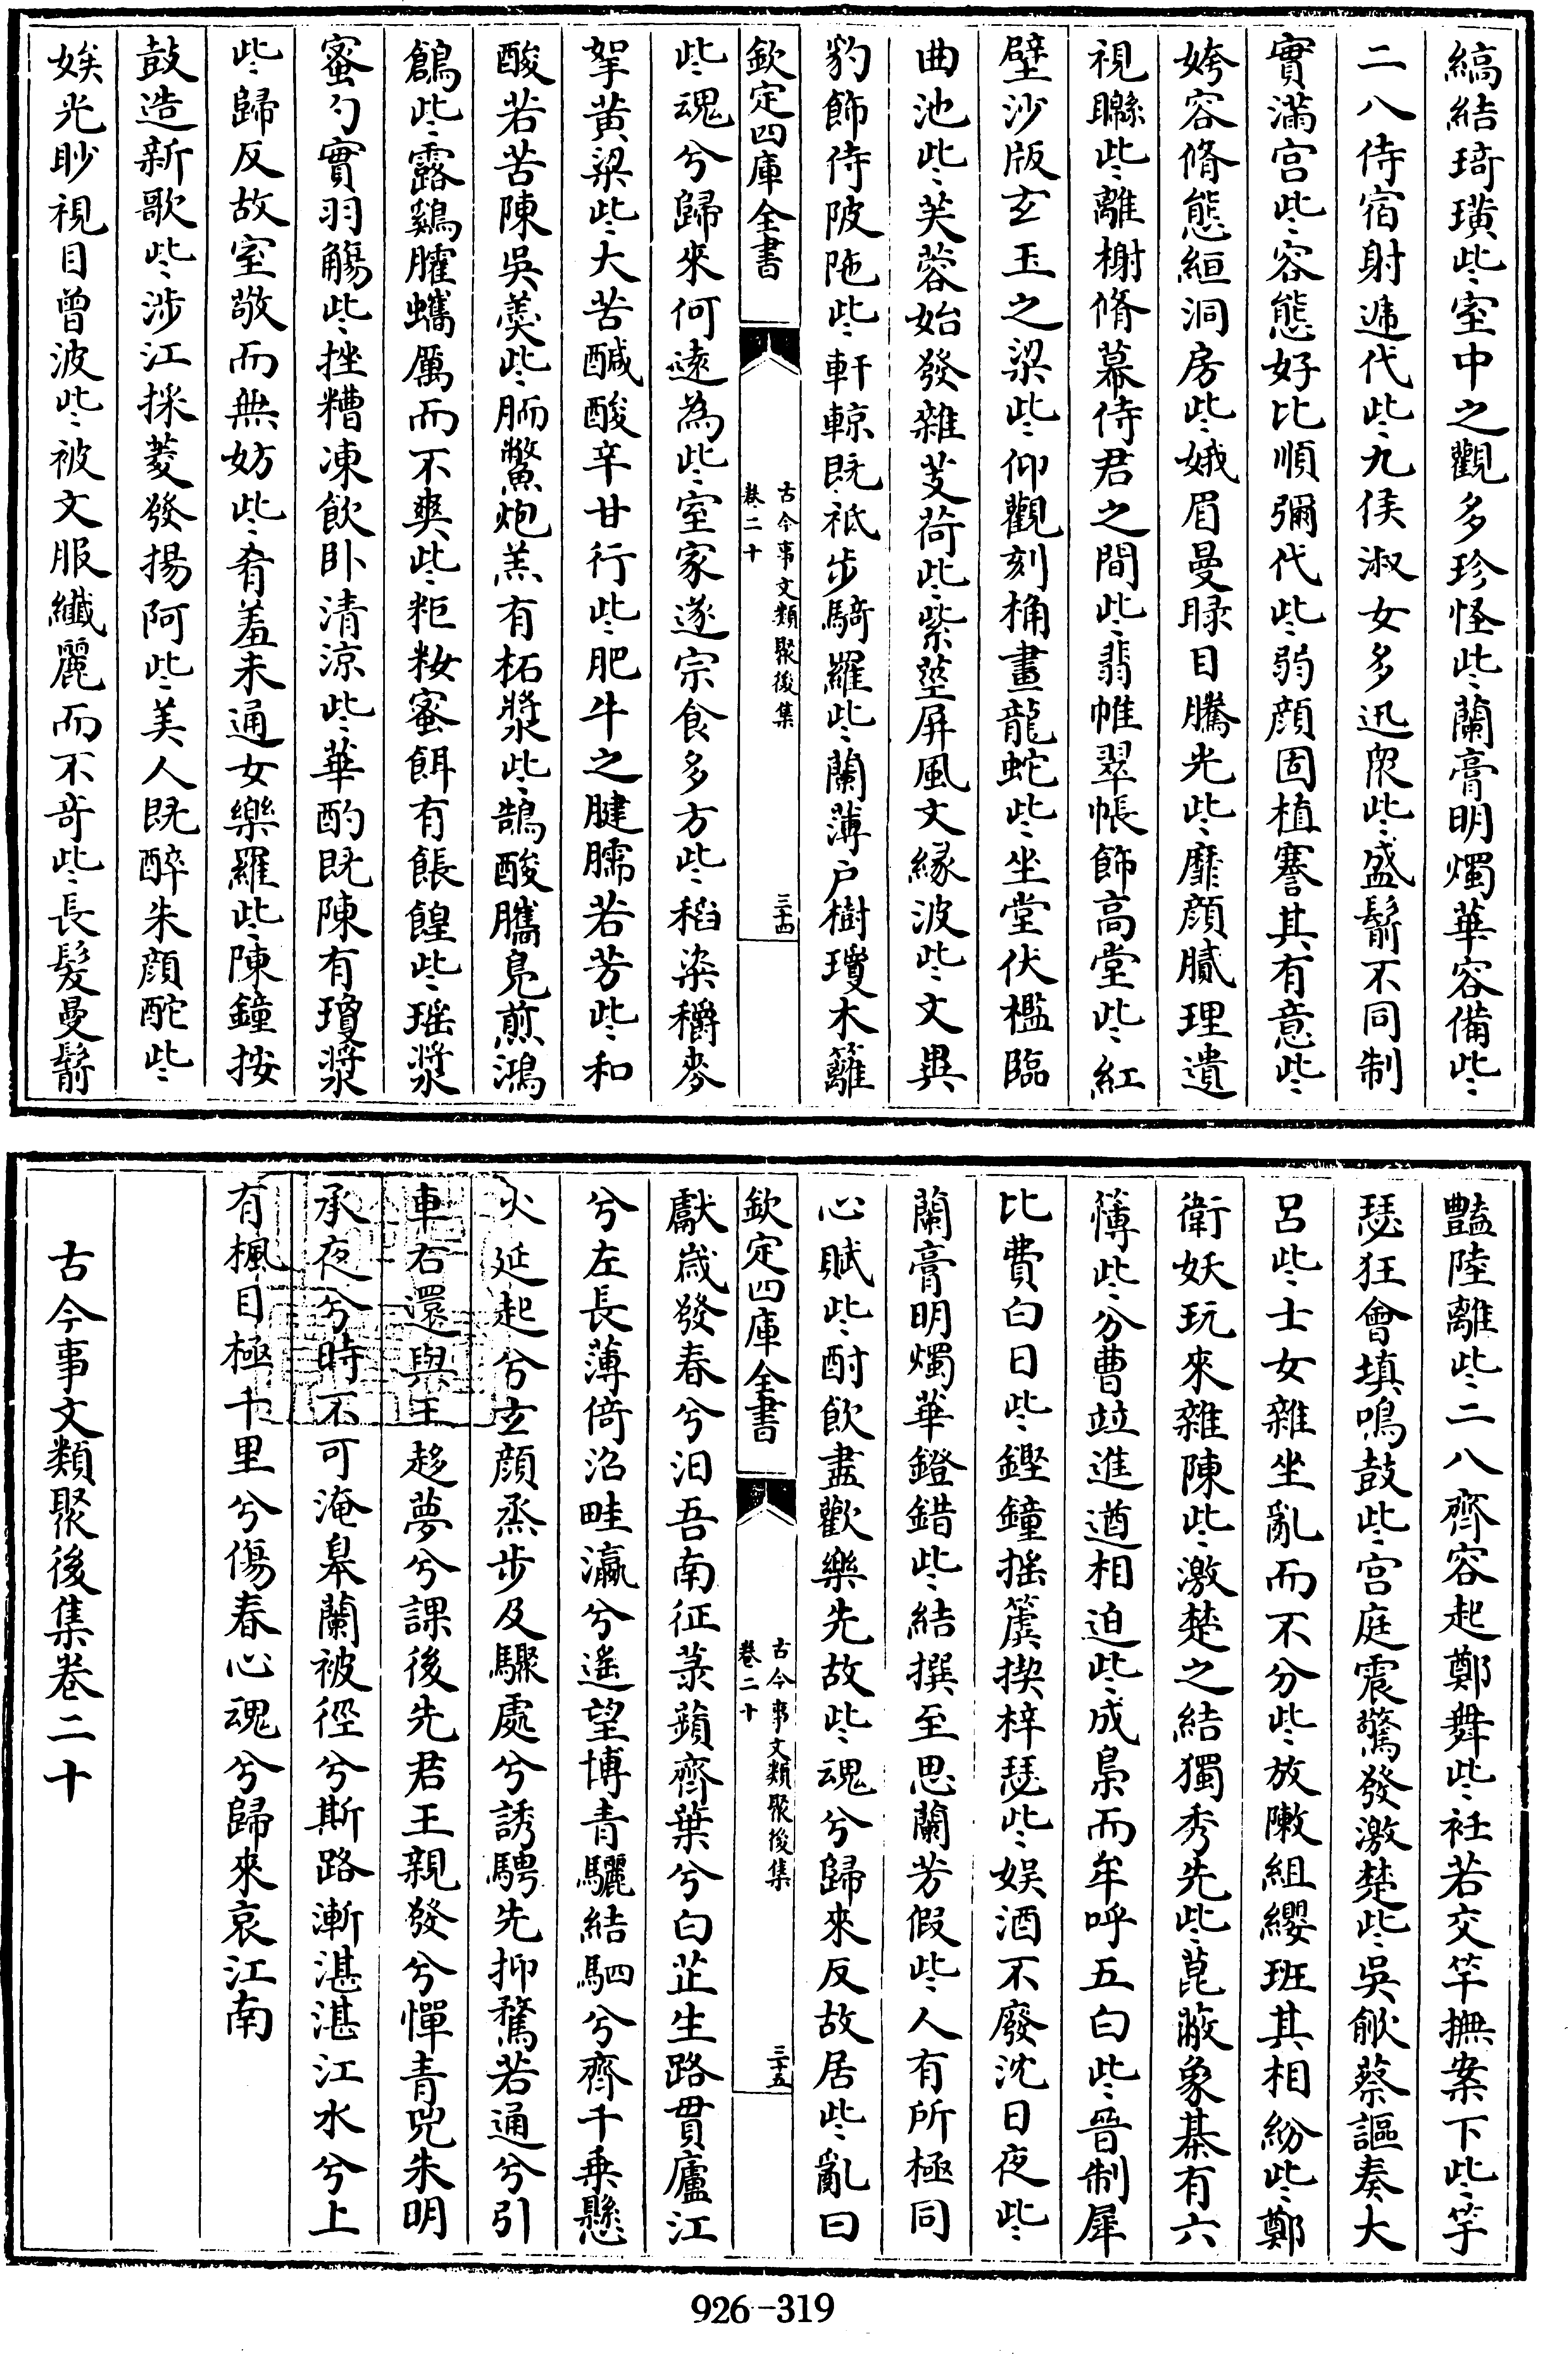 縞結琦璜些室中之觀多珍怪些蘭膏明燭華容備些
二八侍宿射遞代些九侯淑女多迅衆些盛鬋不同制
實滿宫些容態好比順彌代些弱顔固植謇其有意些
姱容脩態絙洞房些娥眉曼睩目騰光些靡顔膩理遺
視矊些離榭脩幕侍君之間些翡帷翠帳飾高堂些紅
壁沙版玄玉之梁些仰觀刻桷畫龍蛇些坐堂伏檻臨
曲池些芙蓉始發雜芰荷些紫莖屏風文縁波些文異
豹飾侍陂陁些軒輬既祗步騎羅些蘭薄户樹瓊木籬
欽定四庫全書
古今事文類聚後集
卷二十
三十四
些魂兮歸來何遠為些室家遂宗食多方些稻粢穱麥
挐黄粱些大苦醎酸辛甘行些肥牛之腱臑若芳些和
酸若苦陳吳羮些胹鱉炮羔有柘漿些鵠酸臇鳬煎鴻
鶬些露鷄臛蠵厲而不爽些粔籹蜜餌有餦餭些瑶漿
蜜勺實羽觴些挫糟凍飲卧清涼些華酌既陳有瓊漿
些歸反故室敬而無妨些肴羞未通女樂羅些陳鐘按
鼓造新歌些涉江採菱發揚阿些美人既醉朱顔酡些
娭光眇視目曾波些被文服纖麗而不奇些長髮曼鬋
豔陸離些二八齊容起鄭舞些衽若交竿撫案下些竽
瑟狂會填鳴鼓些宫庭震驚發激楚些吳歈蔡謳奏大
呂些士女雜坐亂而不分些放敶組纓班其相紛些鄭
衛妖玩來雜陳些激楚之結獨秀先些菎蔽象棊有六
簙些分曹竝進遒相迫些成梟而牟呼五白些晉制犀
比費白日些鏗鐘揺簴揳梓瑟些娱酒不廢沈日夜些
蘭膏明燭華鐙錯些結撰至思蘭芳假些人有所極同
心賦些酎飲盡歡樂先故些魂兮歸來反故居些亂曰
欽定四庫全書
古今事文類聚後集
卷二十
三十五
獻嵗發春兮汨吾南征菉蘋齊葉兮白芷生路貫廬江
兮左長薄倚沼畦瀛兮遥望博青驪結駟兮齊千乗懸
火延起兮玄顔烝步及驟處兮誘騁先抑騖若通兮引
車右還與王趍夢兮課後先君王親發兮憚青兕朱明
承夜兮時不可淹臯蘭被徑兮斯路漸湛湛江水兮上
有楓目極千里兮傷春心魂兮歸來哀江南
古今事文類聚後集卷二十
926-319